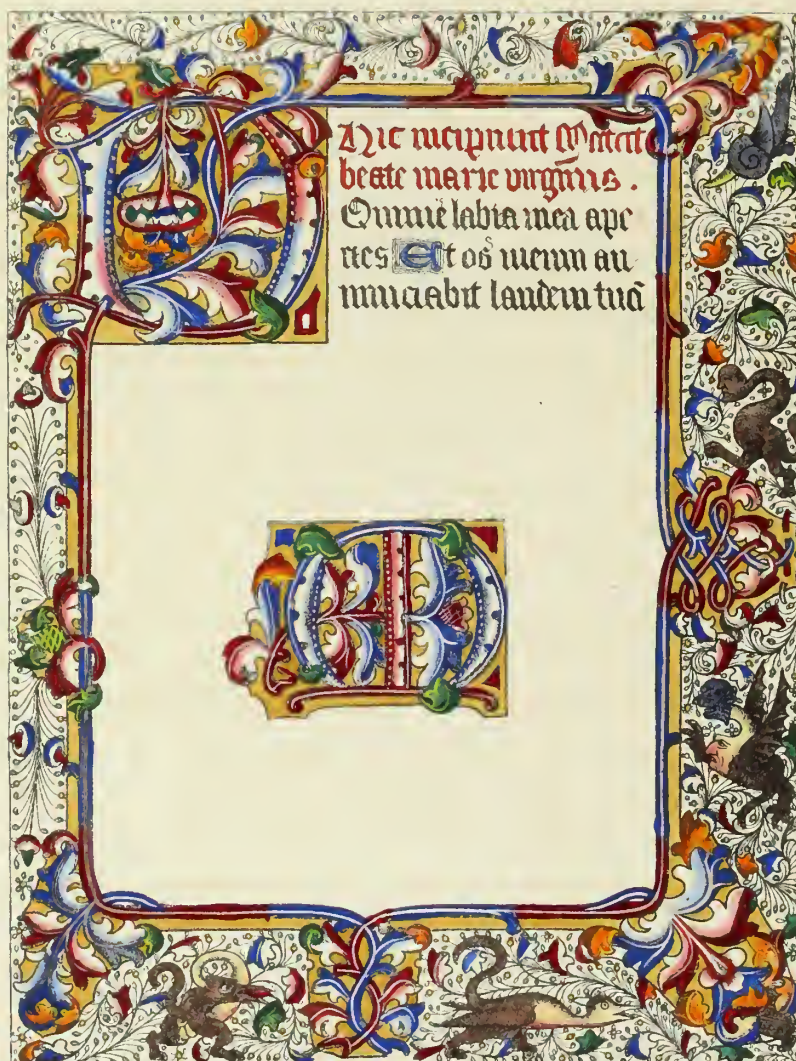 Hic incipiunt Matut
beate marie virginis.
D Omine labia mea ape
ries Et os meum an
nunciabit laudem tuā
M